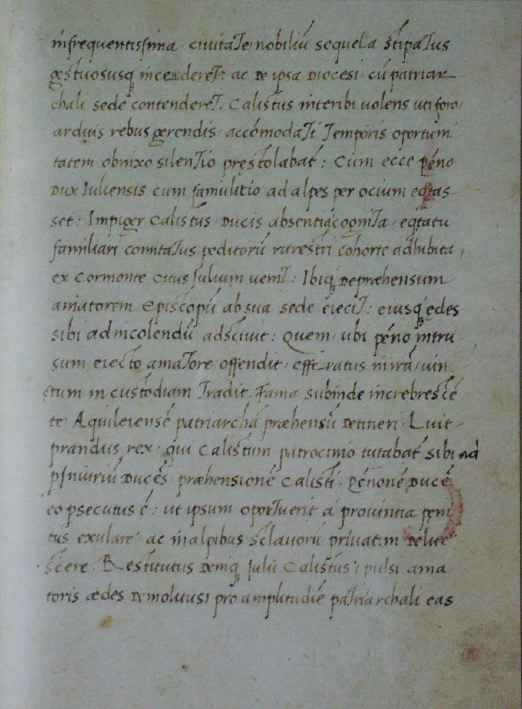 infrequentissima civitate, nobiliū sequela stipatus
gestuosusq incederet: ac de ipsa diocesi cū patriar
chali sede contenderet. Calistus interibi uolens uti foro
arduis rebus gerendis accōmodati temporis oportuni
tatem obnixo silentio prestolabat: Cum ecce peno
Dux Iuliensis cum famulitio ad alpes per ocium eqtas
set: Impiger Calistus Ducis absentia cognita, eqtatu
familiari comitatus peditorū rurestri cohorte adhibita,
ex Cormonte citus Iulium uenit: Ibiq depraehensum
amatorem Episcopū ab sua sede eiecit: eiusq edes
sibi ad incolendū adsciuit: Quem ubi peno intru
sum, eiecto amatore offendit, efferatus in ira, uin
ctum in custodiam tradit. Fama subinde increbrescē
te Aquileiensē patriarchā praehensū detineri. Luit
prandus rex, qui Calistum patrocinio tutabat, sibi ad
iniuriū Ducēs, praehensionē Calisti, Penonē Ducē
eo psecutus ē: ut ipsum oportuerit a prouintia peni
tus exulare, ac in alpibus Sclauorū priuatim delite
scere. Restitutus demiq Iulii Calistus, pulsi ama
toris ædes demolitus, pro amplitudīe patriarchali eas